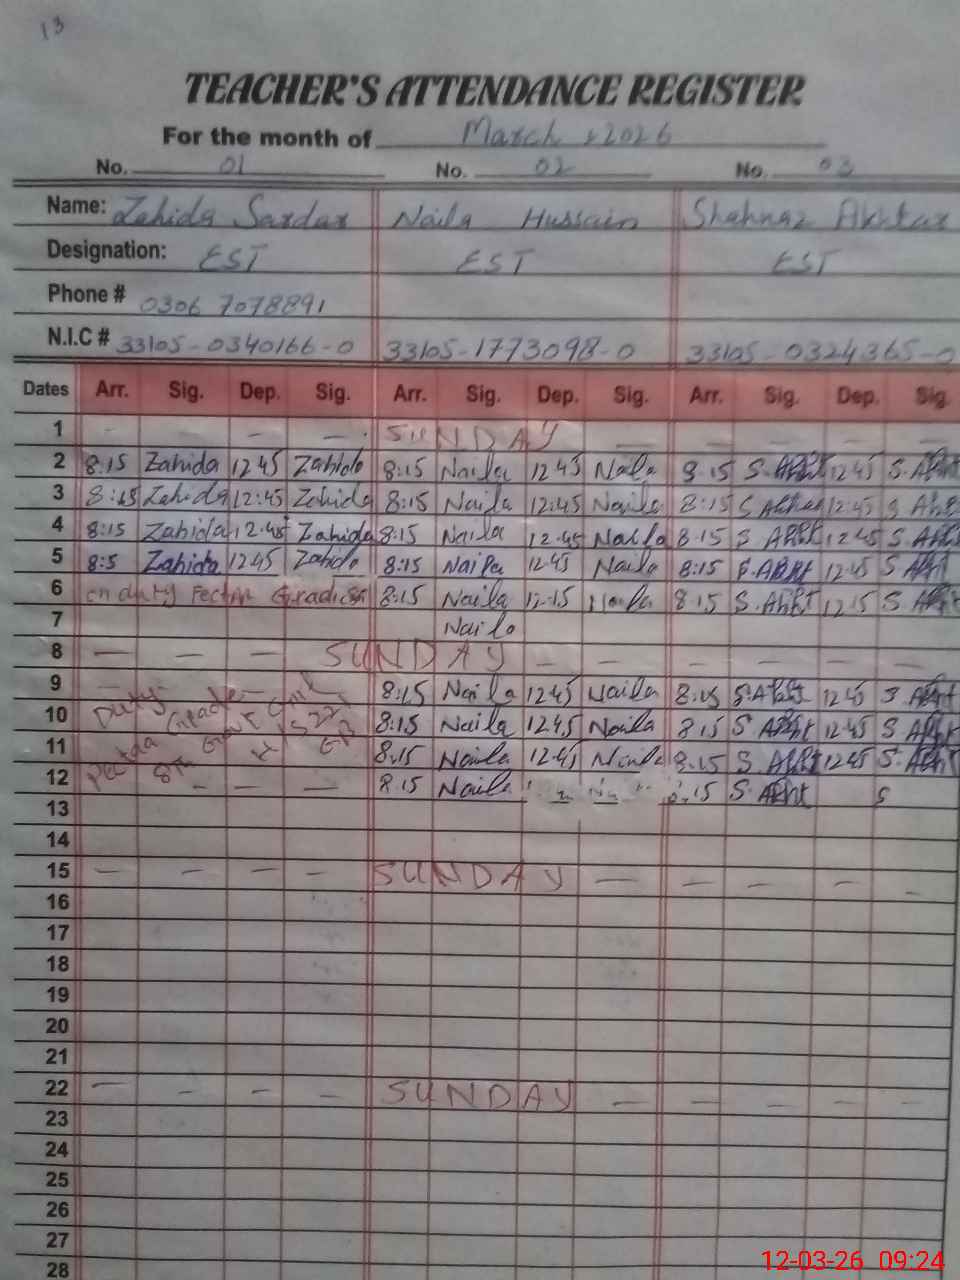 13
TEACHER'S ATTENDANCE REGISTER
For the month of March, 2026
No. 01 No. 02 No. 03
Name: Zahida Sardar Naila Hussain Shahnaz Akhtar
Designation: EST EST EST
Phone # 0306 7078891
N.I.C # 33105-0340166-0 33105-1773098-0 33105-0324365-0
Dates Arr. Sig. Dep. Sig. Arr. Sig. Dep. Sig. Arr. Sig. Dep. Sig.
1 SUNDAY
2 8:15 Zahida 12 45 Zahida 8:15 Naila 12 45 Naila 8 15 S. Akht 12 45 S. Akht
3 8:15 Zahida 12:45 Zahida 8:15 Naila 12:45 Naila 8:15 S Akhtar 12:45 S Akht
4 8:15 Zahida 12:45 Zahida 8:15 Naila 12:45 Naila 8:15 S. Akht 12 45 S. Akht
5 8:5 Zahida 1245 Zahida 8:15 Naila 12:45 Naila 8:15 S. Akht 12:45 S. Akht
6 on duty 8:15 Naila 12:15 Naila 8:15 S. Akht 12:15 S. Akht
7 Naila
8 SUNDAY
9 Duty 8:15 Naila 1245 Naila 8:15 S. Akht 12 45 S. Akht
10 8:15 Naila 12.45 Naila 8:15 S. Akht 12:45 S Akht
11 Pectaa 8:15 Naila 12:45 Naila 8:15 S. Akht 1245 S. Akht
12 8th 8:15 Naila 15 S. Akht S
13
14
15 SUNDAY
16
17
18
19
20
21
22 SUNDAY
23
24
25
26
27
28
12-03-26 09:24